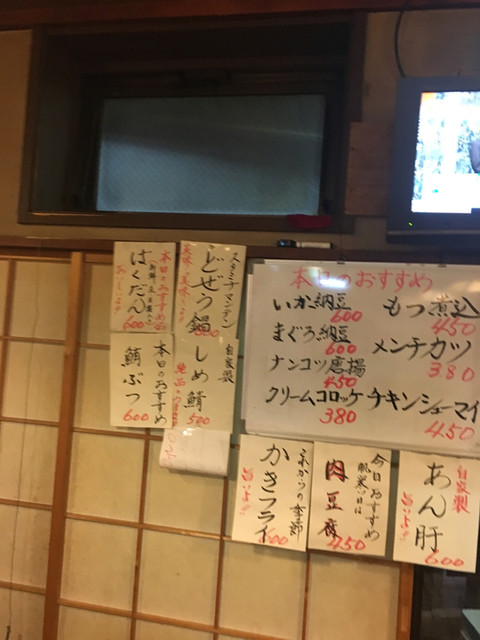 本日のおすすめ
いか納豆
600
まぐろ納豆
600
ナンコツ唐揚
450
クリームコロッケ
380
もつ煮込
450
メンチカツ
380
チキンシューマイ
450
スタミナマンテン
どぜう鍋
本日のおすすめ
ばくだん
600
自家製
しめ鯖
500
本日のおすすめ
鯖ぶつ
600
これからの季節
かきフライ
600
今日おすすめ
肌寒い日は
肉豆腐
450
自家製
あん肝
旨いよ!!
600